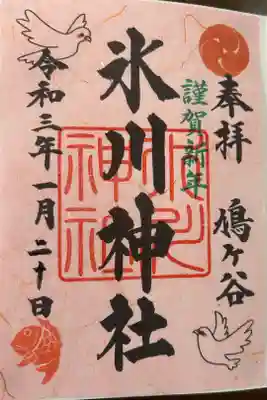 奉拝 鳩ヶ谷
謹賀新年
氷川神社
氷川神社
令和三年一月二十日